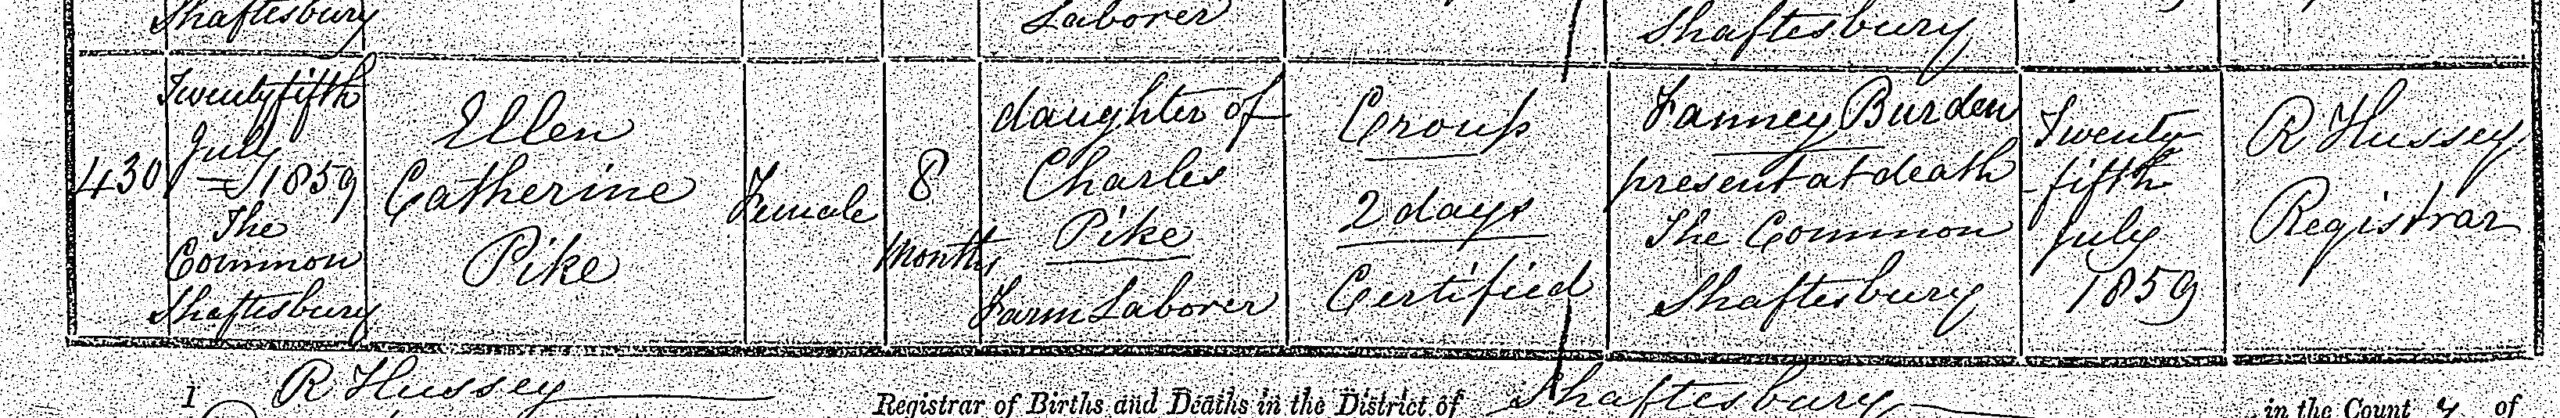 Shaftesbury
Laborer
Shaftesbury
430
Twenty fifth
July
1859
The
Common
Shaftesbury
Ellen
Catherine
Pike
Female
8
Months
daughter of
Charles
Pike
Farm Laborer
Croup
2 days
Certified
Fanney Burden
present at death
The Common
Shaftesbury
Twenty
fifth
July
1859
R Hussey
Registrar
I R Hussey Registrar of Births and Deaths in the District of Shaftesbury in the County of